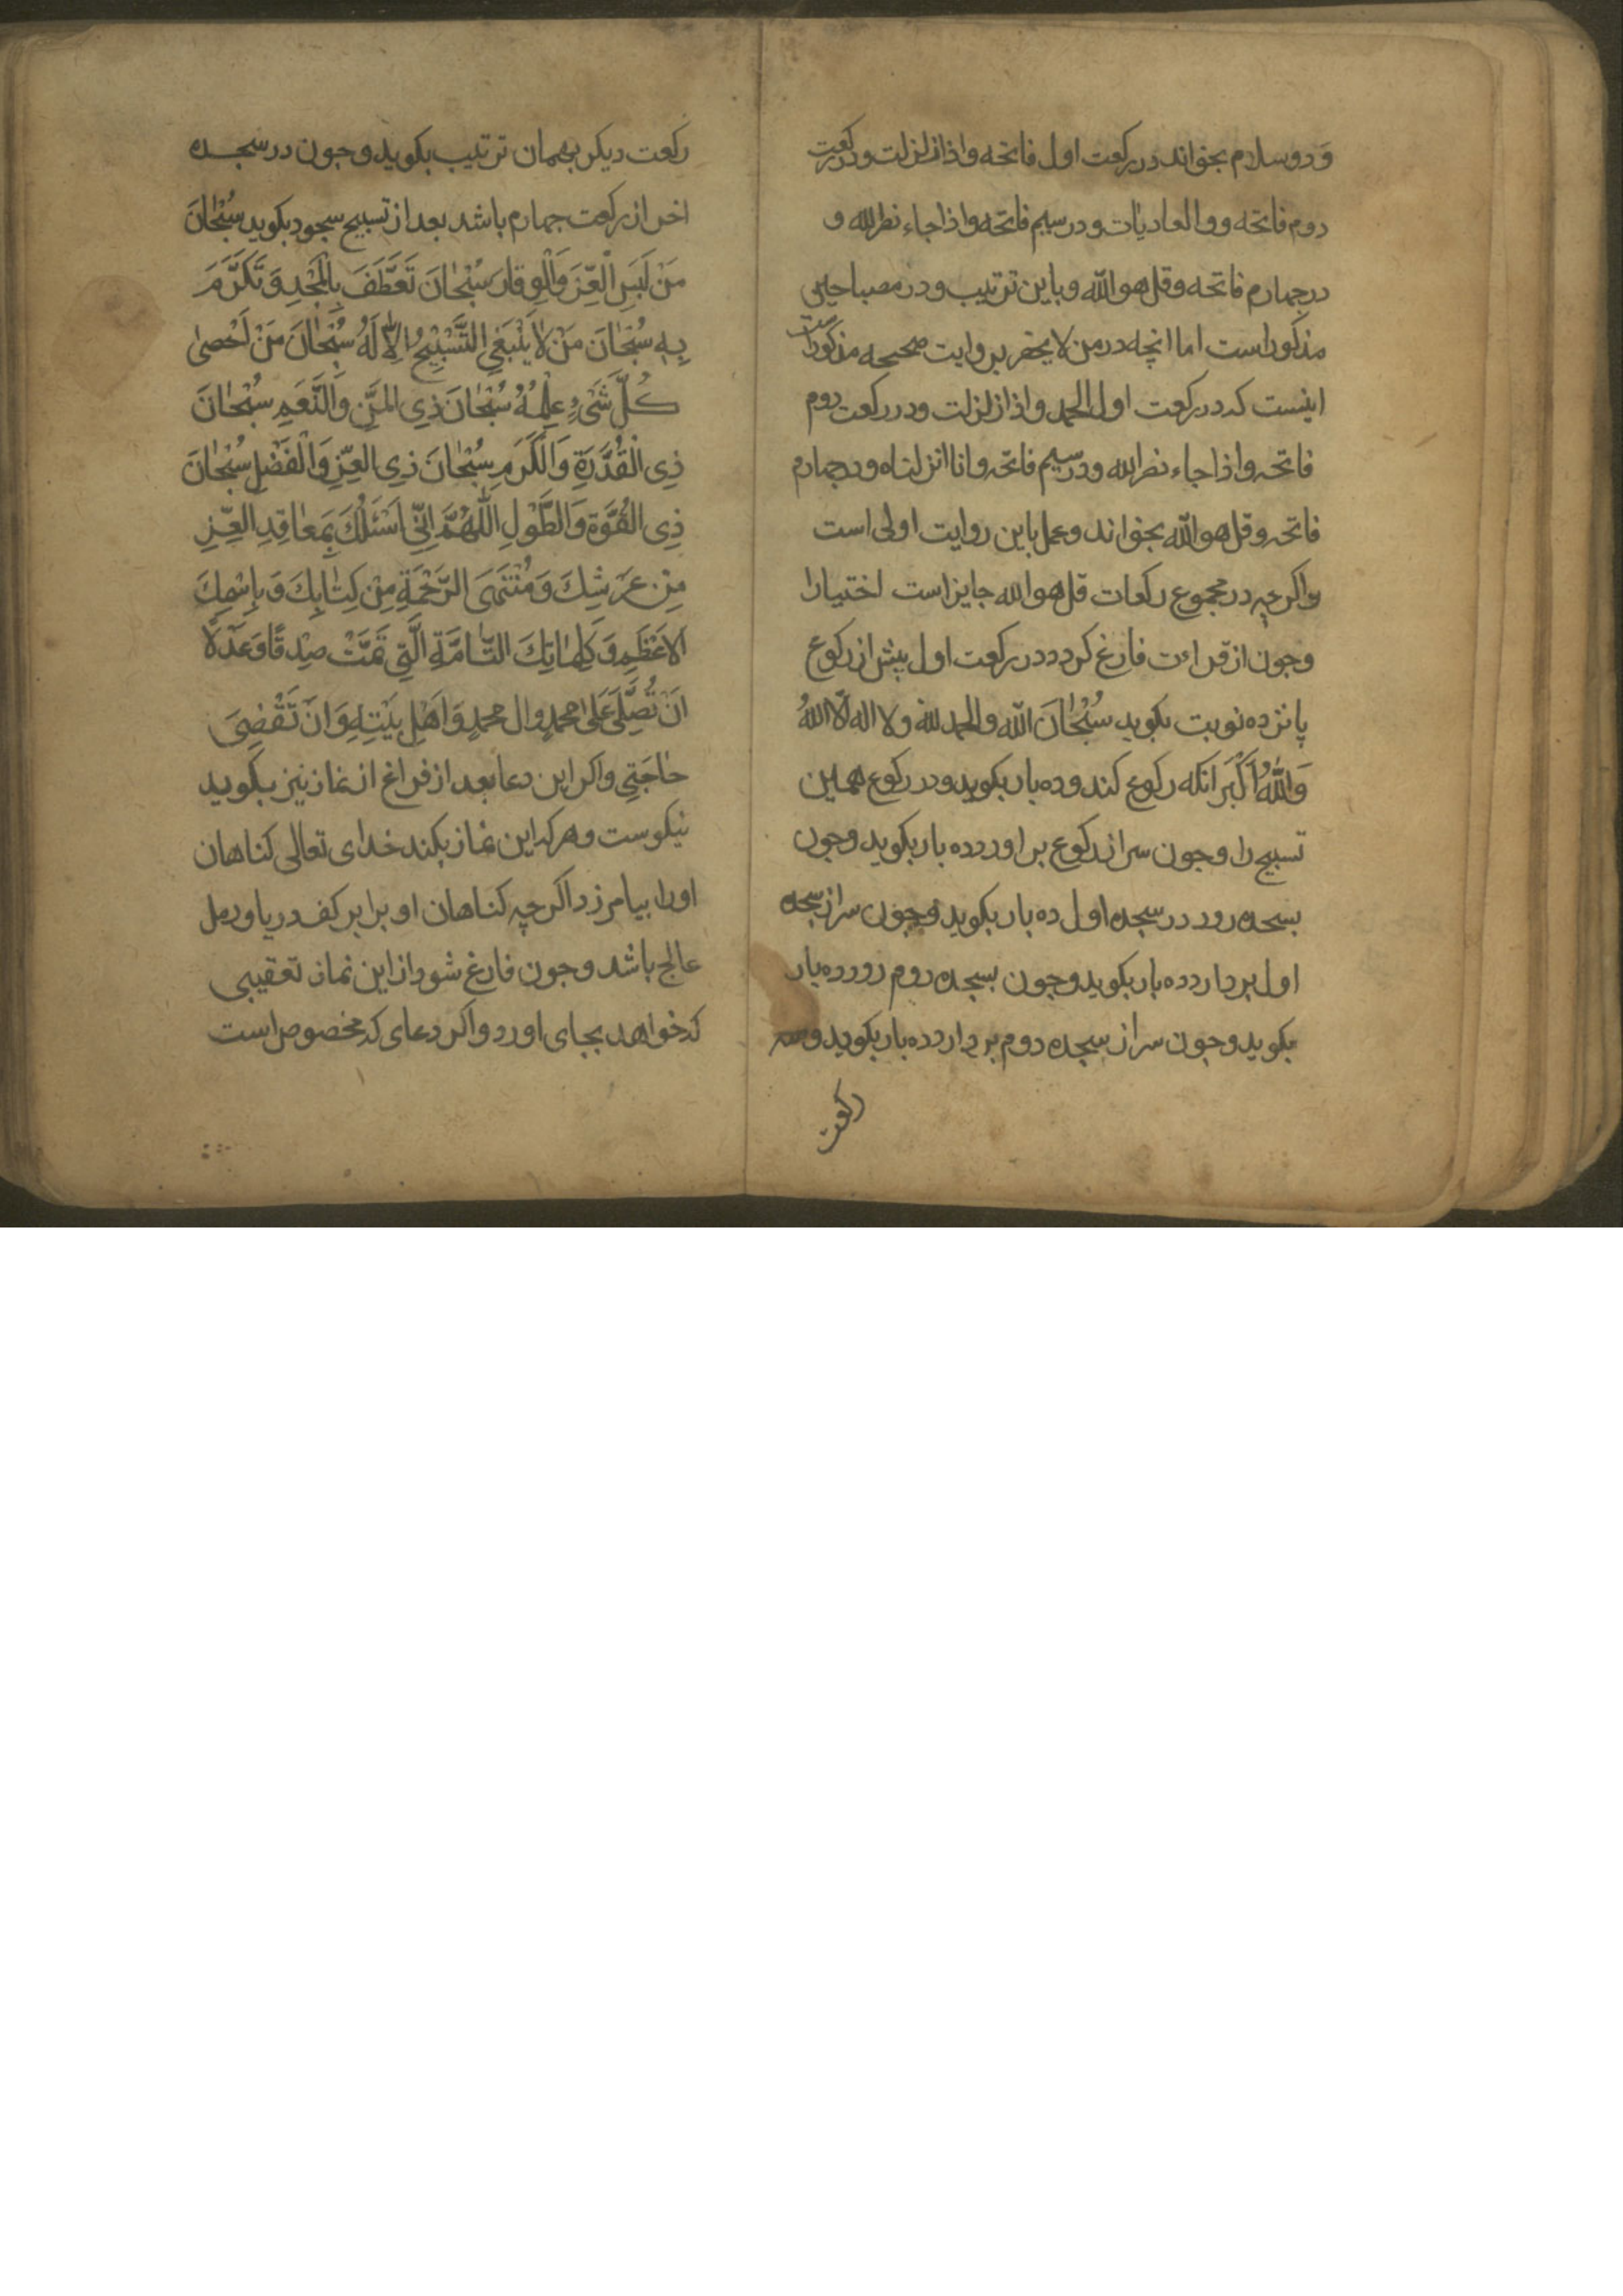 و دو سلام بخواند در رکعت اول فاتحه و اذا زلزلت و در رکعت
دوم فاتحه و والعادیات و در سیم فاتحه و اذا جاء نصر الله و
در چهارم فاتحه و قل هو الله و باین ترتیب و در مصباحین
مذکور است اما انچه در من لا یحضر بروایت صحیحه مذکور است
اینست که در رکعت اول الحمد و اذا زلزلت و در رکعت دوم
فاتحه و اذا جاء نصر الله و در سیم فاتحه و انا انزلناه و در چهارم
فاتحه و قل هو الله بخواند و عمل باین روایت اولی است
و اکر چه در مجموع رکعات قل هو الله جایز است اختیارا
و چون از قراءت فارغ کردد در رکعت اول پیش از رکوع
پانزده نوبت بکوید سُبْحٰانَ اللّه والحمد للّه ولا اله الّا اللّهُ
وَاللّهُ اَکْبَر انکه رکوع کند و ده بار بکوید و در رکوع همین
تسبیح را و چون سر از رکوع بر اورد ده بار بکوید و چون
بسجده رود در سجده اول ده بار بکوید و چون سر از سجده
اول بردارد ده بار بکوید و چون بسجده دوم رود ده بار
بکوید و چون سر از سجده دوم بردارد ده بار بکوید و سه
رکعت
رکعت دیکر بهمان ترتیب بکوید و چون در سجده
اخر از رکعت چهارم باشد بعد از تسبیح سجود بکوید سُبْحٰانَ
مَنْ لَبِسَ الْعِزَّ وَالْوِقٰارَ سُبْحٰانَ تَعَطَّفَ بِالْمَجْدِ وَ تَکَرَّمَ
بِهِ سُبْحٰانَ مَنْ لٰا یَنْبَغِی التَّسْبِیْحُ اِلّٰا لَهُ سُبْحٰانَ مَنْ اَحْصیٰ
کُلَّ شَیْءٍ عِلْمُهُ سُبْحٰانَ ذِی المَنِّ وَالنِّعَمِ سُبْحٰانَ
ذِی الْقُدْرَةِ وَالْکَرَمِ سُبْحٰانَ ذِی العِزِّ وَالْفَضْلِ سُبْحٰانَ
ذِی القُوَّةِ وَالطَّوْلِ اَللّٰهُمَّ اِنِّی اَسْئَلُکَ بِمَعٰاقِدِ العِزِّ
مِنْ عَرْشِکَ وَ مُنْتَهَی الرَّحْمَةِ مِنْ کِتٰابِکَ وَ بِاسْمِکَ
الاَعْظَمِ وَ کَلِمٰاتِکَ التّٰامَّةِ الَّتِی تَمَّتْ صِدْقًا وَ عَدْلًا
اَنْ تُصَلِّیَ عَلیٰ محمدٍ وال محمدٍ وَ اَهْلِ بَیْتِهِ وَ اَنْ تَقْضِیَ
حٰاجَتِی و اکر این دعا بعد از فراغ از نماز نیز بکوید
نیکوست و هر که این نماز بکند خدای تعالی کناهان
او را بیامرزد اکر چه کناهان او برابر کف دریا و رمل
عالج باشد و چون فارغ شود از این نماز تعقیبی
که خواهد بجای اورد و اکر دعای که مخصوص است